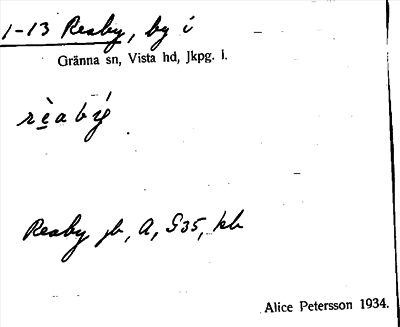 1-13 Reaby, by i
Gränna sn, Vista hd, Jkpg. l.
rèabý
Reaby jb, A, G35, kb
Alice Petersson 1934.